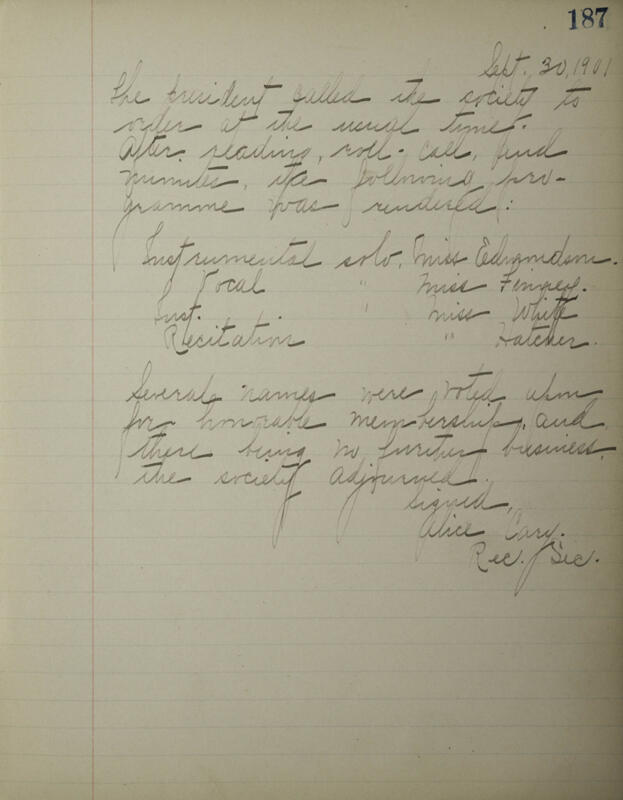 187
Sept. 30, 1901
The president called the society to
order at the usual time.
After reading, roll-call, and
minutes, the following pro-
gramme was rendered:
Instrumental solo, Miss Edmondson.
Vocal " Miss
Inst. " Miss White
Recitation " Hatcher.
Several names were voted upon
for honorable membership, and
there being no further business,
the society adjourned.
Signed,
Alice Cary.
Rec. Sec.